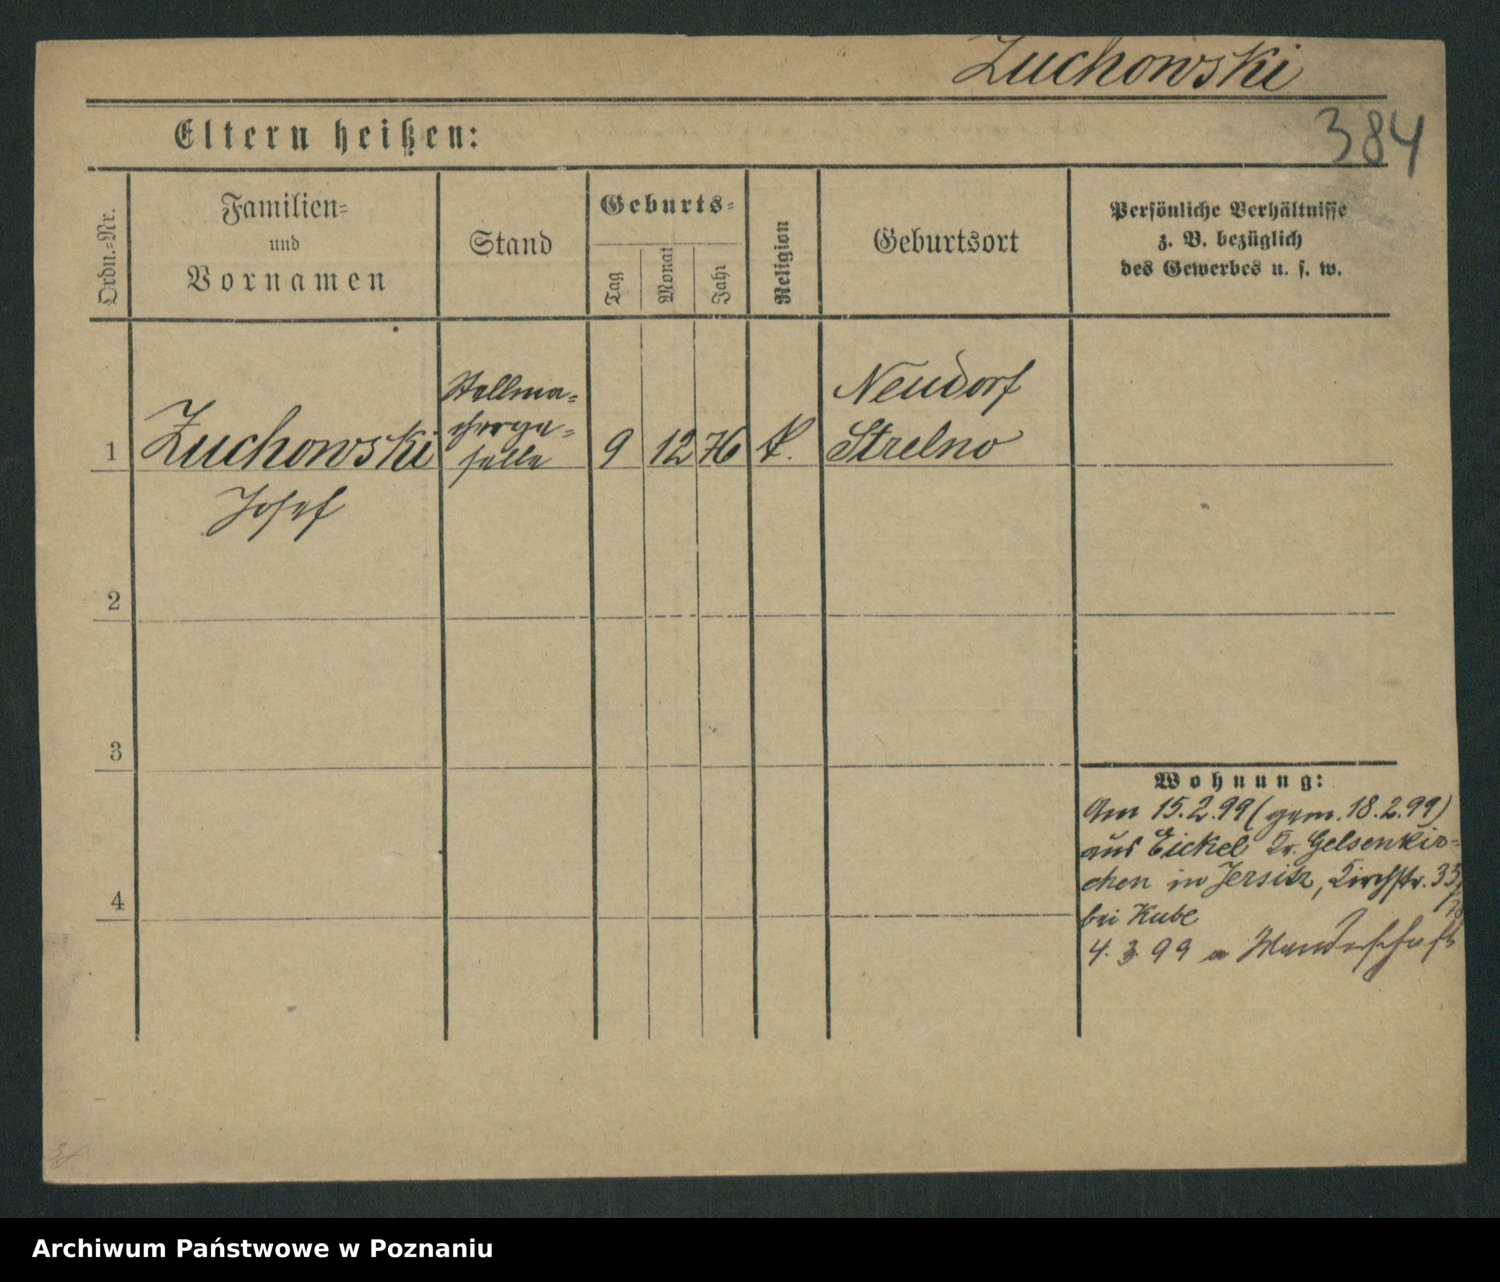 Zuchowski
384
Eltern heißen:
Ordn.=Nr.
Familien=
und
Vornamen
Stand
Geburts=
Tag
Monat
Jahr
Religion
Geburtsort
Persönliche Verhältnisse
z. B. bezüglich
des Gewerbes u. s. w.
1
Zuchowski
Josef
Stellma=
cherge=
selle
9
12
76
k.
Neudorf
Strelno
2
3
4
Wohnung:
Am 15.2.99 (gem. 18.2.99)
aus Eickel Kr. Gelsenkir=
chen in Jersitz, Kirchstr. 33
bei Kube
4. 3. 99 a Wanderschaft
Archiwum Państwowe w Poznaniu